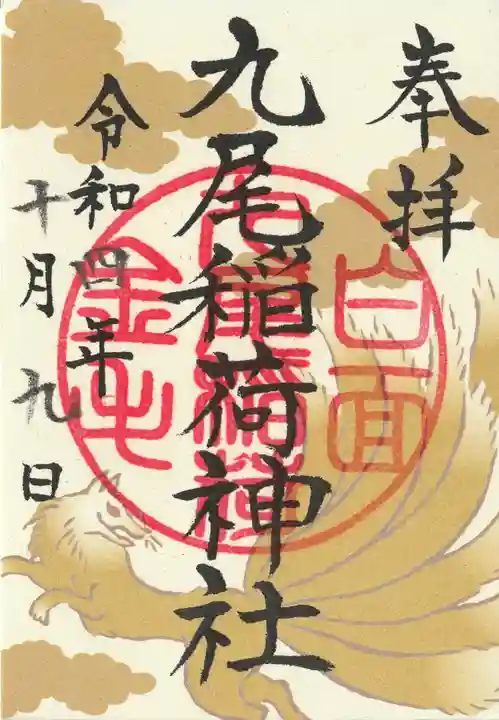 奉拝
白面
九尾稲荷神社
金毛
令和四年
十月九日